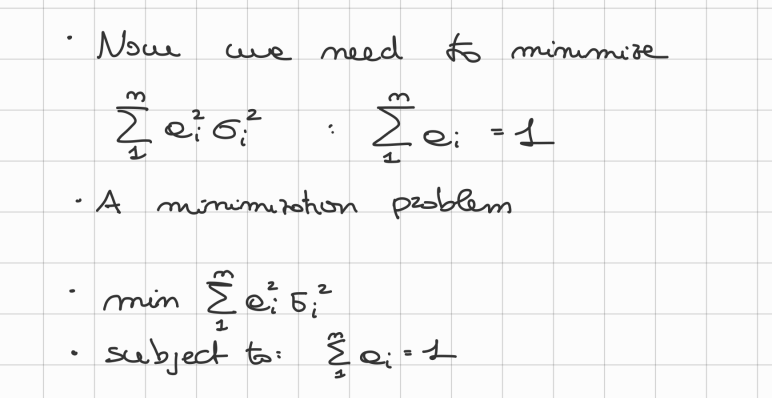 · Now we need to minimize
m∑1 aᵢ² σᵢ² : m∑1 aᵢ = 1
· A minimization problem
· min m∑1 aᵢ² σᵢ²
· subject to: m∑1 aᵢ = 1